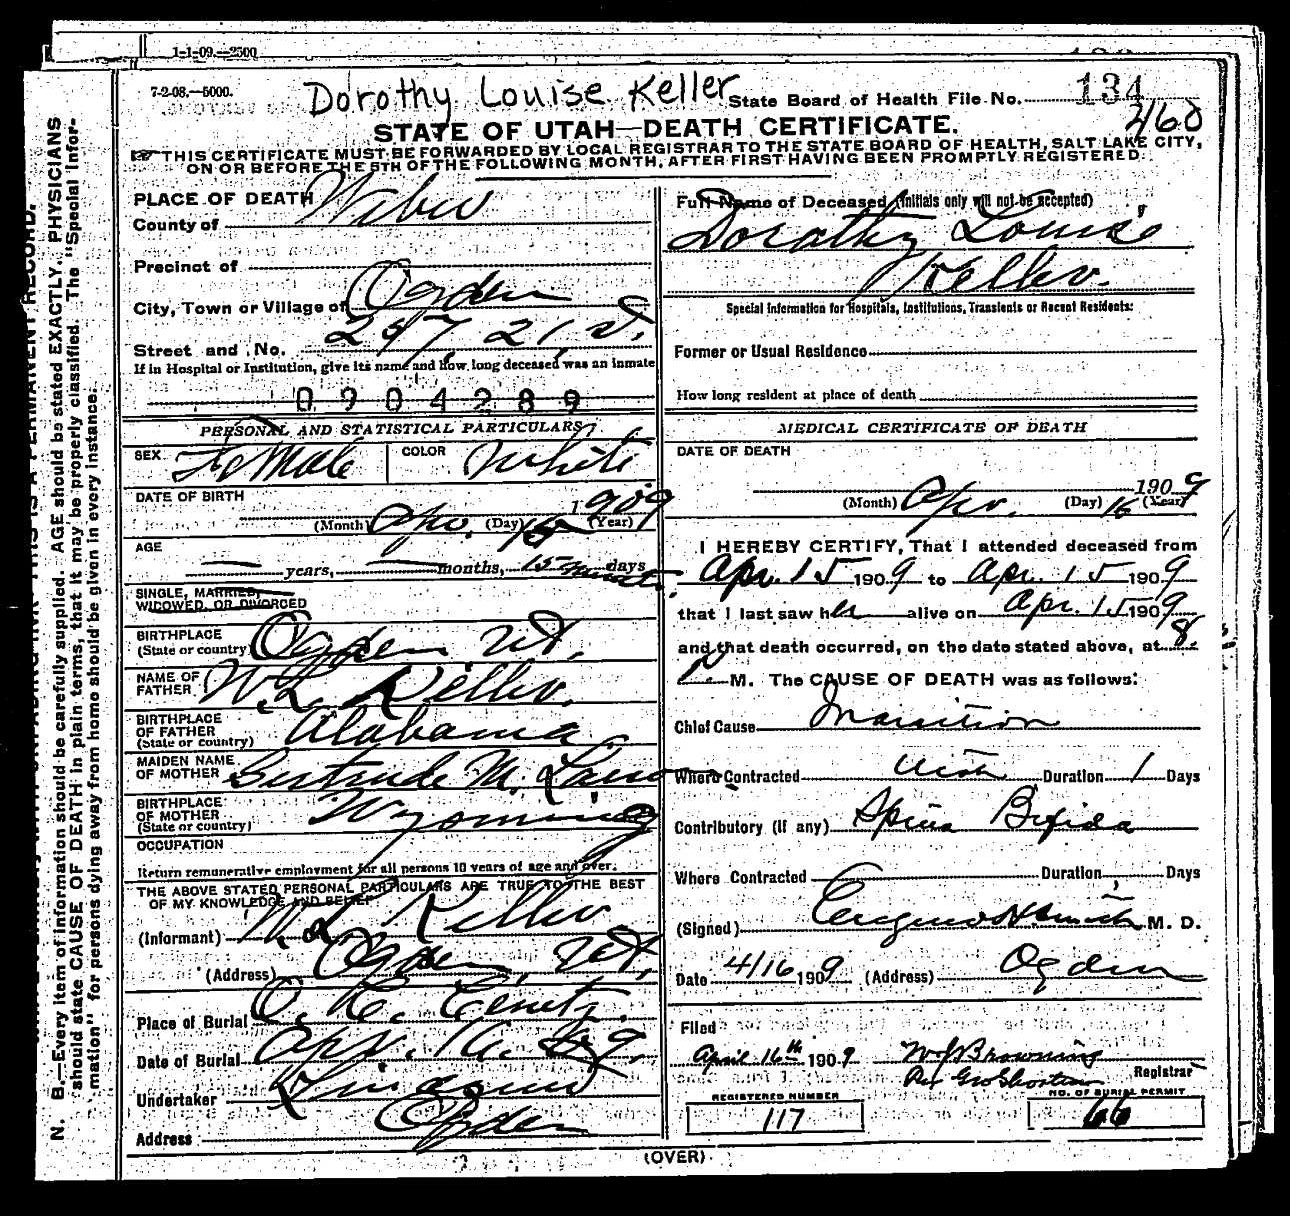 1-1-09.—2500
7-2-08.—5000.
Dorothy Louise Keller
State Board of Health File No. 134
2/60
STATE OF UTAH—DEATH CERTIFICATE.
THIS CERTIFICATE MUST BE FORWARDED BY LOCAL REGISTRAR TO THE STATE BOARD OF HEALTH, SALT LAKE CITY,
ON OR BEFORE THE 5TH OF THE FOLLOWING MONTH, AFTER FIRST HAVING BEEN PROMPTLY REGISTERED.
N. B.—Every item of information should be carefully supplied. AGE should be stated EXACTLY. PHYSICIANS
should state CAUSE OF DEATH in plain terms, that it may be properly classified. The "Special Infor-
mation" for persons dying away from home should be given in every instance.
PLACE OF DEATH
County of Weber
Precinct of
City, Town or Village of Ogden
Street and No. 257, 21, St.
If in Hospital or Institution, give its name and how long deceased was an inmate
0904289
PERSONAL AND STATISTICAL PARTICULARS
SEX Female COLOR White
DATE OF BIRTH
(Month) Apr. (Day) 15 (Year) 1909
AGE
years, months, 15 minutes days
SINGLE, MARRIED,
WIDOWED, OR DIVORCED
BIRTHPLACE
(State or country) Ogden Ut.
NAME OF
FATHER W. L. Keller.
BIRTHPLACE
OF FATHER
(State or country) Alabama
MAIDEN NAME
OF MOTHER Gertrude M.
BIRTHPLACE
OF MOTHER
(State or country) Wyoming
OCCUPATION
Return remunerative employment for all persons 10 years of age and over.
THE ABOVE STATED PERSONAL PARTICULARS ARE TRUE TO THE BEST
OF MY KNOWLEDGE AND BELIEF
(Informant) W. L. Keller
(Address) Ogden, Ut,
Place of Burial O. C. Cemety.
Date of Burial Apr. 16. 09.
Undertaker
Address Ogden
Full Name of Deceased (Initials only will not be accepted)
Dorothy Louise
Keller.
Special Information for Hospitals, Institutions, Transients or Recent Residents:
Former or Usual Residence
How long resident at place of death
MEDICAL CERTIFICATE OF DEATH
DATE OF DEATH
(Month) Apr. (Day) 15 1909 (Year)
I HEREBY CERTIFY, That I attended deceased from
Apr. 15 1909 to Apr. 15 1909
that I last saw her alive on Apr. 15 1909
and that death occurred, on the date stated above, at 8.
P. M. The CAUSE OF DEATH was as follows:
Chief Cause Inanition
Where Contracted Utah Duration 1 Days
Contributory (if any) Spina Bifida
Where Contracted Duration Days
(Signed) H. Smith M. D.
Date 4/16 1909 (Address) Ogden
Filed
April 16th 1909 W J Browning
Registrar
REGISTERED NUMBER
117
NO. OF BURIAL PERMIT
66
(OVER)